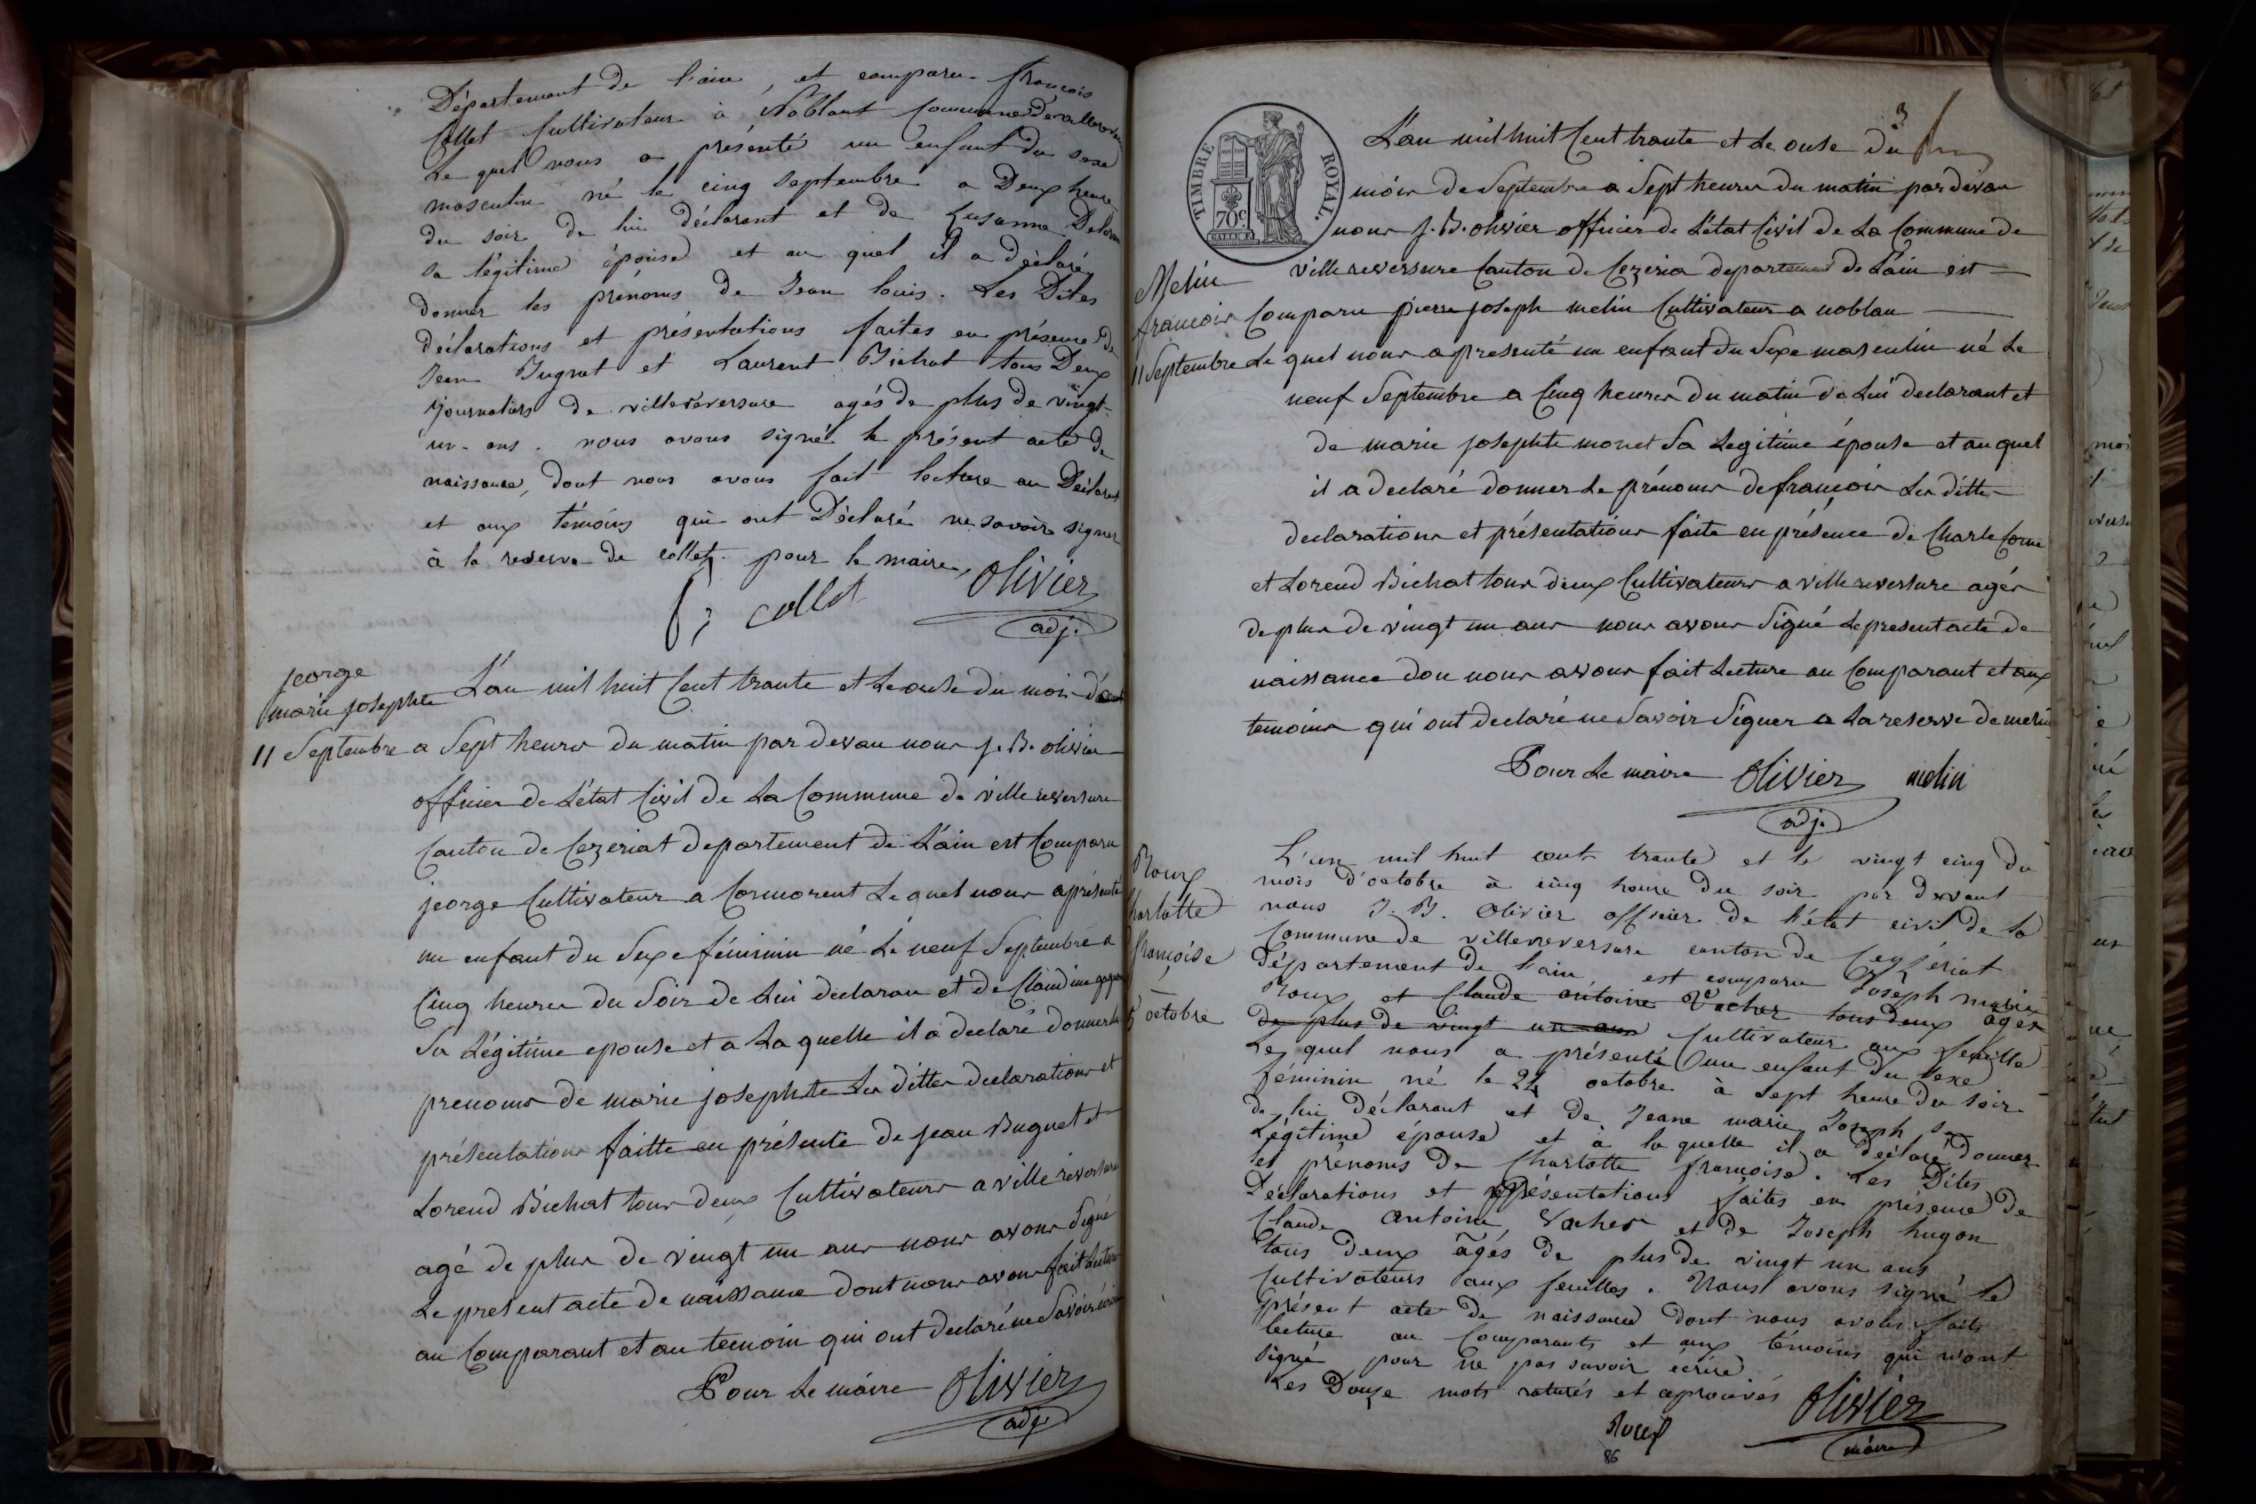 Département de l'ain, et comparu françois
Collet Cultivateur à Noblant Commune de
Le quel nous a présenté un enfant du sexe
masculin né le cinq septembre a Deux heure
du soir de lui déclarant et de Susanne
sa légitime épouse et au quel il a déclaré
donner les prénoms de Jean louis. Les Dites
déclarations et présentations faites en présence de
Jean Bugnet et Laurent Bichat tous Deux
journaliers de villereversure agés de plus de vingt-
un-ans. nous avons signé le présent acte de
naissance, dont nous avons fait lecture au Déclarant
et aux témoins qui ont Déclaré ne savoir signer
à la reserve de collet. pour le maire,
collet Olivier
adj.
jeorge
marie josephte
11 Septembre
L'an mil huit Cent trante et Le onse du mois
a Sept heures du matin par devan nous J. B. olivier
officier de L'état Civil de La Commune de villereversure
Canton de Cezeriat departement de L'ain est Comparu
jeorge Cultivateur a Cormorent Le quel nous a présenté
un enfant du Sexe féminin né Le neuf Septembre a
Cinq heures du Soir de Lui declaran et de Claudine
Sa Légitime epouse et a La quelle il a declaré donner les
prenoms de marie josephte Les dittes declarations et
présentations faitte en présente de jean Bugnet et
Lorend Bichat tous deux Cultivateurs a villereversure
agé de plus de vingt un ans nous avons Signé
Le present acte de naissance dont nous avons fait Lecture
au Comparant et au temoin qui ont declaré ne Savoir
Pour Le maire Olivier
adj.
TIMBRE ROYAL.
70c.
3
L'an mil huit Cent trante et Le onse du
mois de Septembre a Sept heures du matin par devan
nous J. B. olivier officier de L'état Civil de La Commune de
villereversure Canton de Cezeria departement de L'ain est
Melin
francois
11 Septembre
Comparu pierre joseph melin Cultivateur a noblan
Le quel nous a presenté un enfant du Sexe masculin né Le
neuf Septembre a Cinq heures du matin de Lui declarant et
de marie josephte monet Sa Legitime épouse et au quel
il a declaré donner Le prénoms de francois Les ditte
declarations et présentations faite en présence de Charle
et Lorend Bichat tous deux Cultivateurs a villereversure agés
de plus de vingt un ans nous avons Signé Le present acte de
naissance don nous avons fait Lecture au Comparant et aux
temoins qui ont declaré ne Savoir Signer a La reserve de melin
Pour Le maire Olivier melin
adj.
Roux
Charlotte
françoise
octobre
L'an mil huit cent trante et le vingt cinq du
mois d'octobre à cinq heure du soir par devant
nous J. B. Olivier officier de l'état civil de la
Commune de villereversure canton de Ceyzériat
Département de l'ain est comparu Joseph marie
Roux et Claude antoine Vacher tous deux ages
de plus de vingt un ans Cultivateur aux feuilles
Le quel nous a présenté un enfant du sexe
féminin né le 24 octobre à sept heure du soir
de lui déclarant et de Jeane marie Joseph sa
Légitime épouse et à la quelle il a déclaré donner
les prénoms de Charlotte françoise. Les Dites
Déclarations et présentations faites en présence de
Claude antoine Vacher et de Joseph hugon
tous deux âgés de plus de vingt un ans
Cultivateurs aux feuilles. Nous avons signé le
présent acte de naissance dont nous avons fait
lecture au Comparants et aux témoins qui n'ont
signé pour ne pas savoir écrire.
Les Douze mots raturés et aprouvés Olivier
Roux maire
86